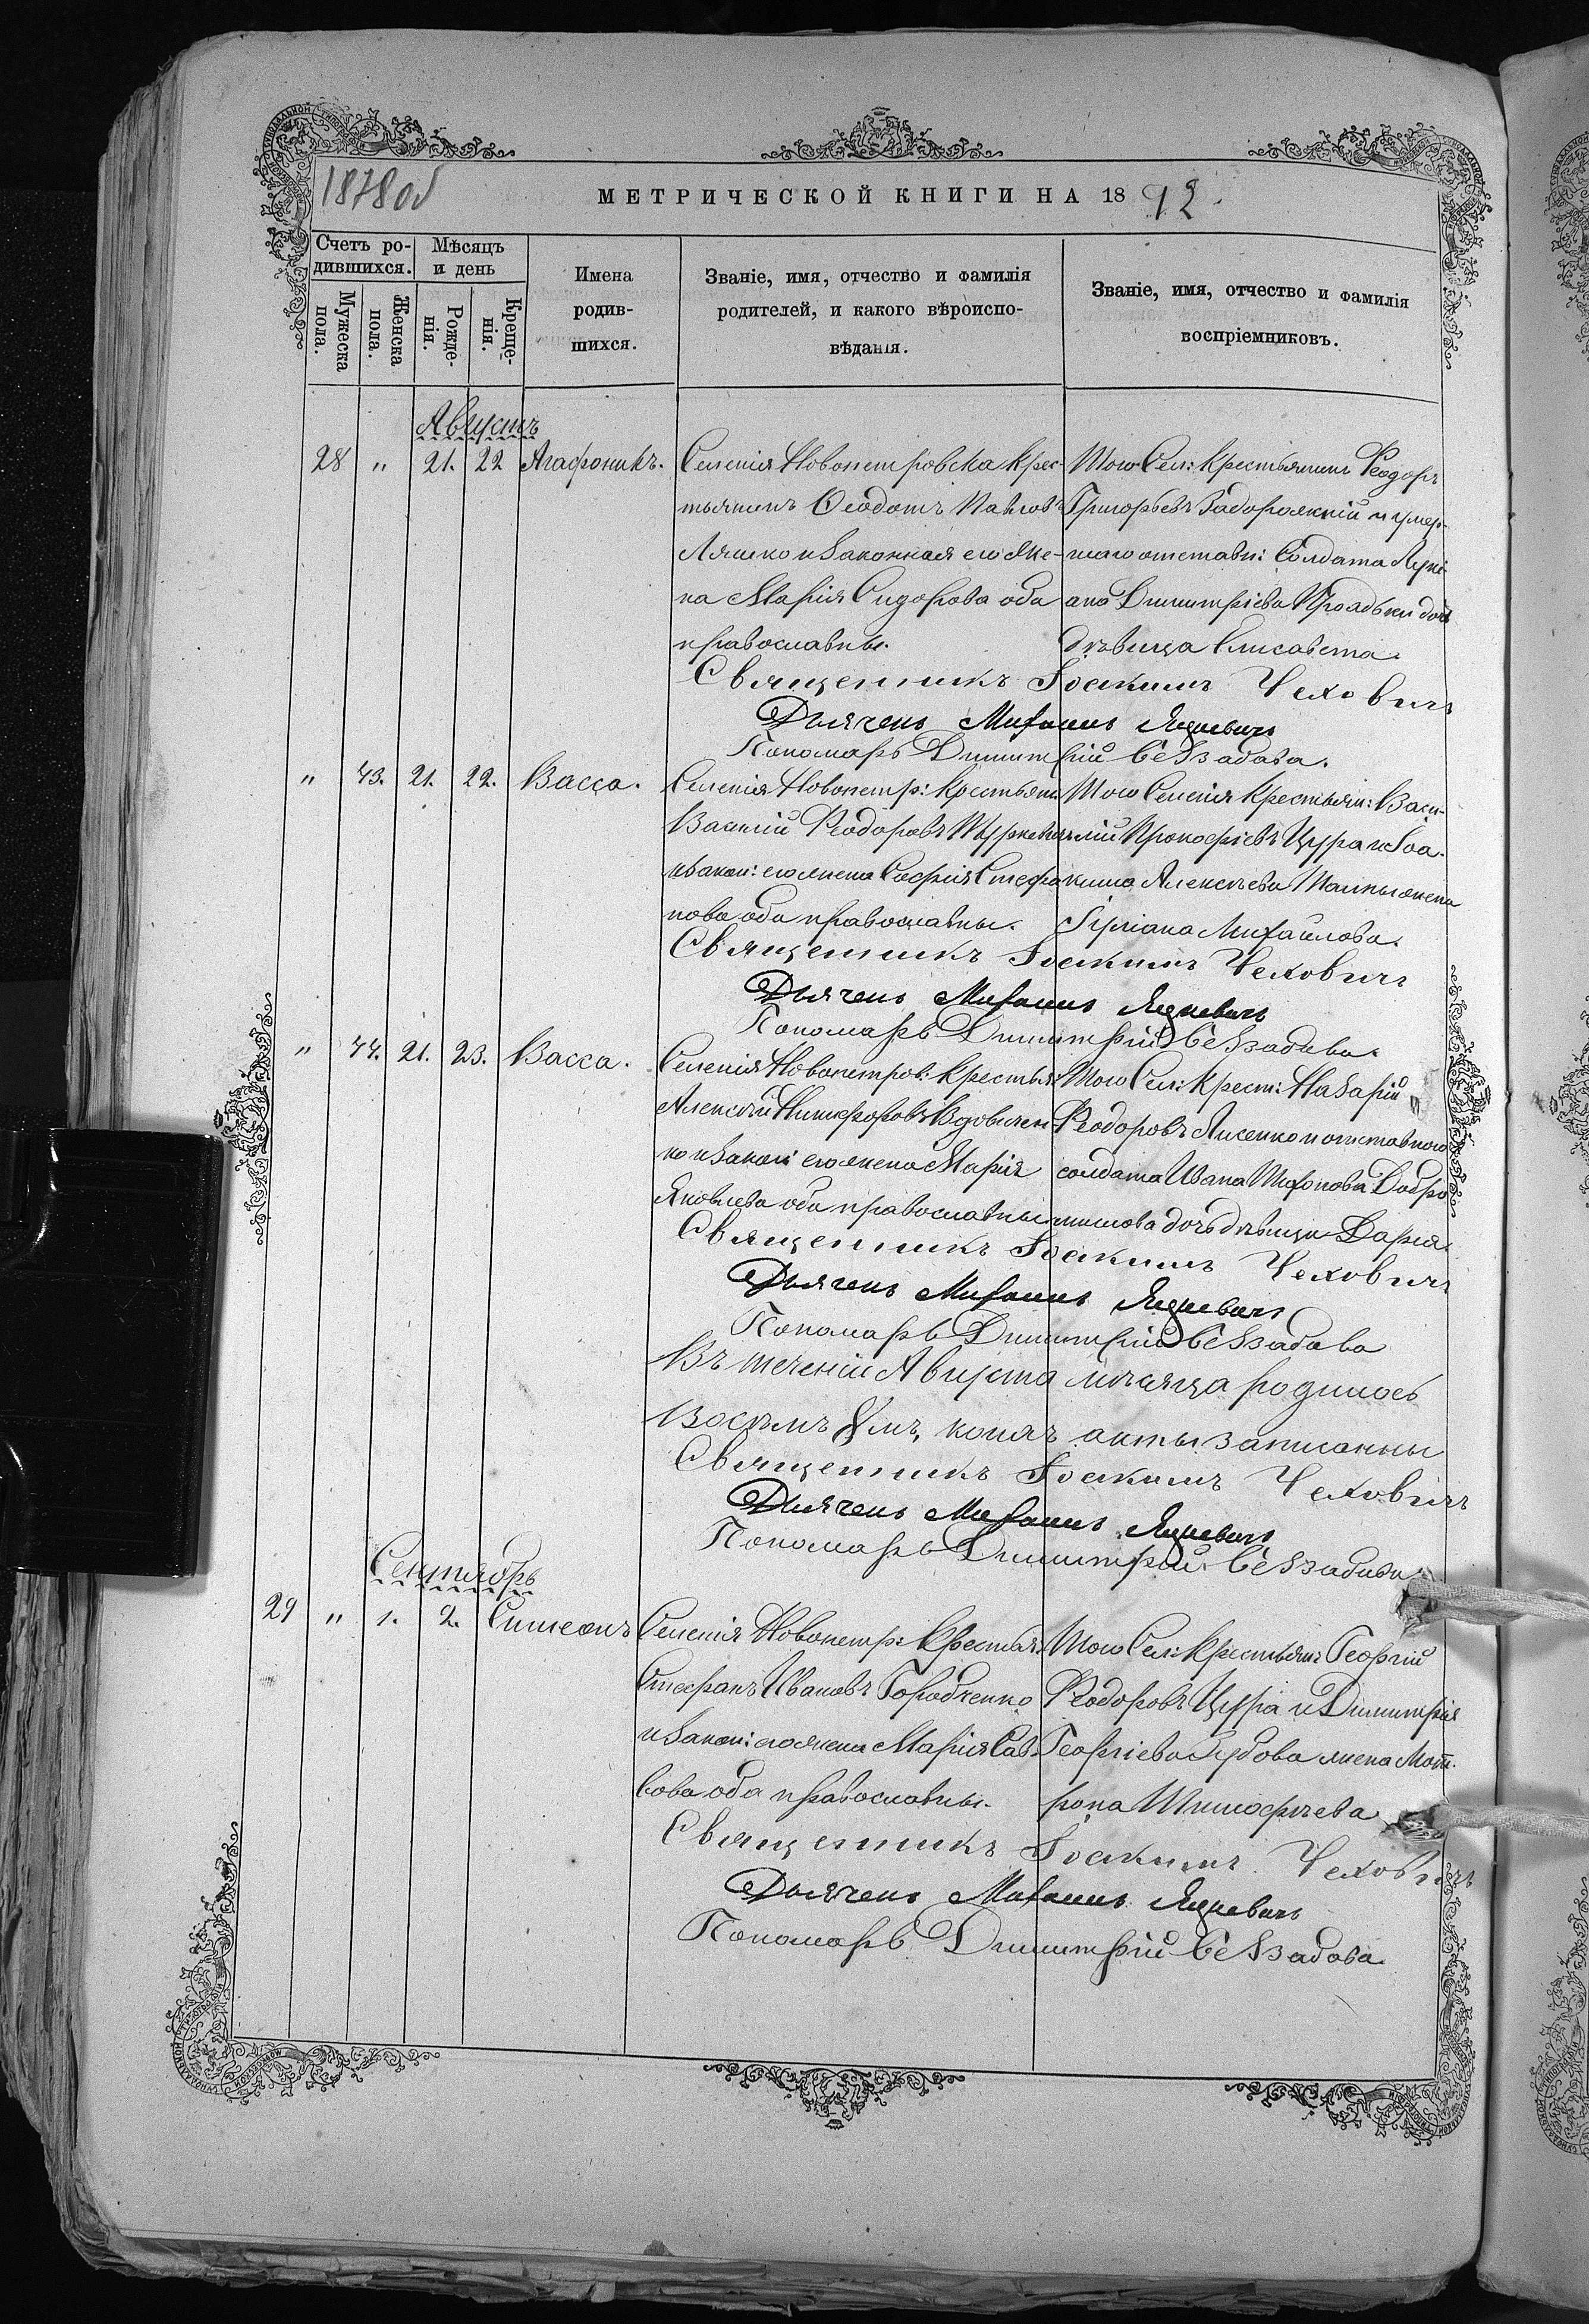 1878 об
МЕТРИЧЕСКОЙ КНИГИ НА 1892.
Счетъ родившихся.
Мѣсяцъ и день
Мужеска пола.
Женска пола.
Рожденія.
Крещенія.
Имена родившихся.
Званіе, имя, отчество и фамилія родителей, и какого вѣроисповѣданія.
Званіе, имя, отчество и фамилія воспріемниковъ.
Августъ
28 " 21. 22 Агафоникъ.
Селенія Новопетровска крес-
тьянинъ Ѳеодотъ Павловъ
Ляшко и законная его же-
на Марія Сидорова оба
православны.
Того Сел: крестьянинъ Ѳеодоръ
Григорьевъ Задорожній и умер-
шаго отставн: Солдата Луки-
ана Димитріева дочь
дѣвица Елисавета.
Священникъ Іоакимъ Чеховичъ
Дьячекъ Михаилъ Яцкевичъ
Пономарь Димитрій Беззабава.
" 43. 21. 22. Васса.
Селенія Новопетр: Крестьян:
Василій Ѳеодоровъ
и закон: его жена Софія Стефа-
нова оба православны.
Того Селенія крестьян: Васи-
лій Прокофіевъ Цура и Іоа-
кима Алексѣева жена
Іуліана Михайлова.
Священникъ Іоакимъ Чеховичъ
Дьячекъ Михаилъ Яцкевичъ
Пономарь Димитрій Беззабава.
" 44. 21. 23. Васса.
Селенія Новопетров: крестья:
Алексѣй Никифоровъ Вдовичен-
ко и закон: его жена Марія
Яковлева оба православны
Того Сел: Крест: Назарій
Ѳеодоровъ Лисенко и отставного
солдата Ивана Тихонова Добро-
дочь дѣвица Дарія.
Священникъ Іоакимъ Чеховичъ
Дьячекъ Михаилъ Яцкевичъ
Пономарь Димитрій Беззабава
Въ теченіи Августа мѣсяца родилось
Восѣмъ 8мъ, коихъ акты записанны
Священникъ Іоакимъ Чеховичъ
Дьячекъ Михаилъ Яцкевичъ
Пономарь Димитрій Беззабава
Сентябрь
29 " 1. 2. Симеонъ
Селенія Новопетр: Крестья:
Стефанъ Ивановъ Городченко
и закон: его жена Марія Сав-
вова оба православны.
Того Сел: Крестьян: Георгій
Ѳеодоровъ Цура и Димитрія
Георгіева Зубова жена Мат-
рона Тимофѣева
Священникъ Іоакимъ Чеховичъ
Дьячекъ Михаилъ Яцкевичъ
Пономарь Димитрій Беззабава.